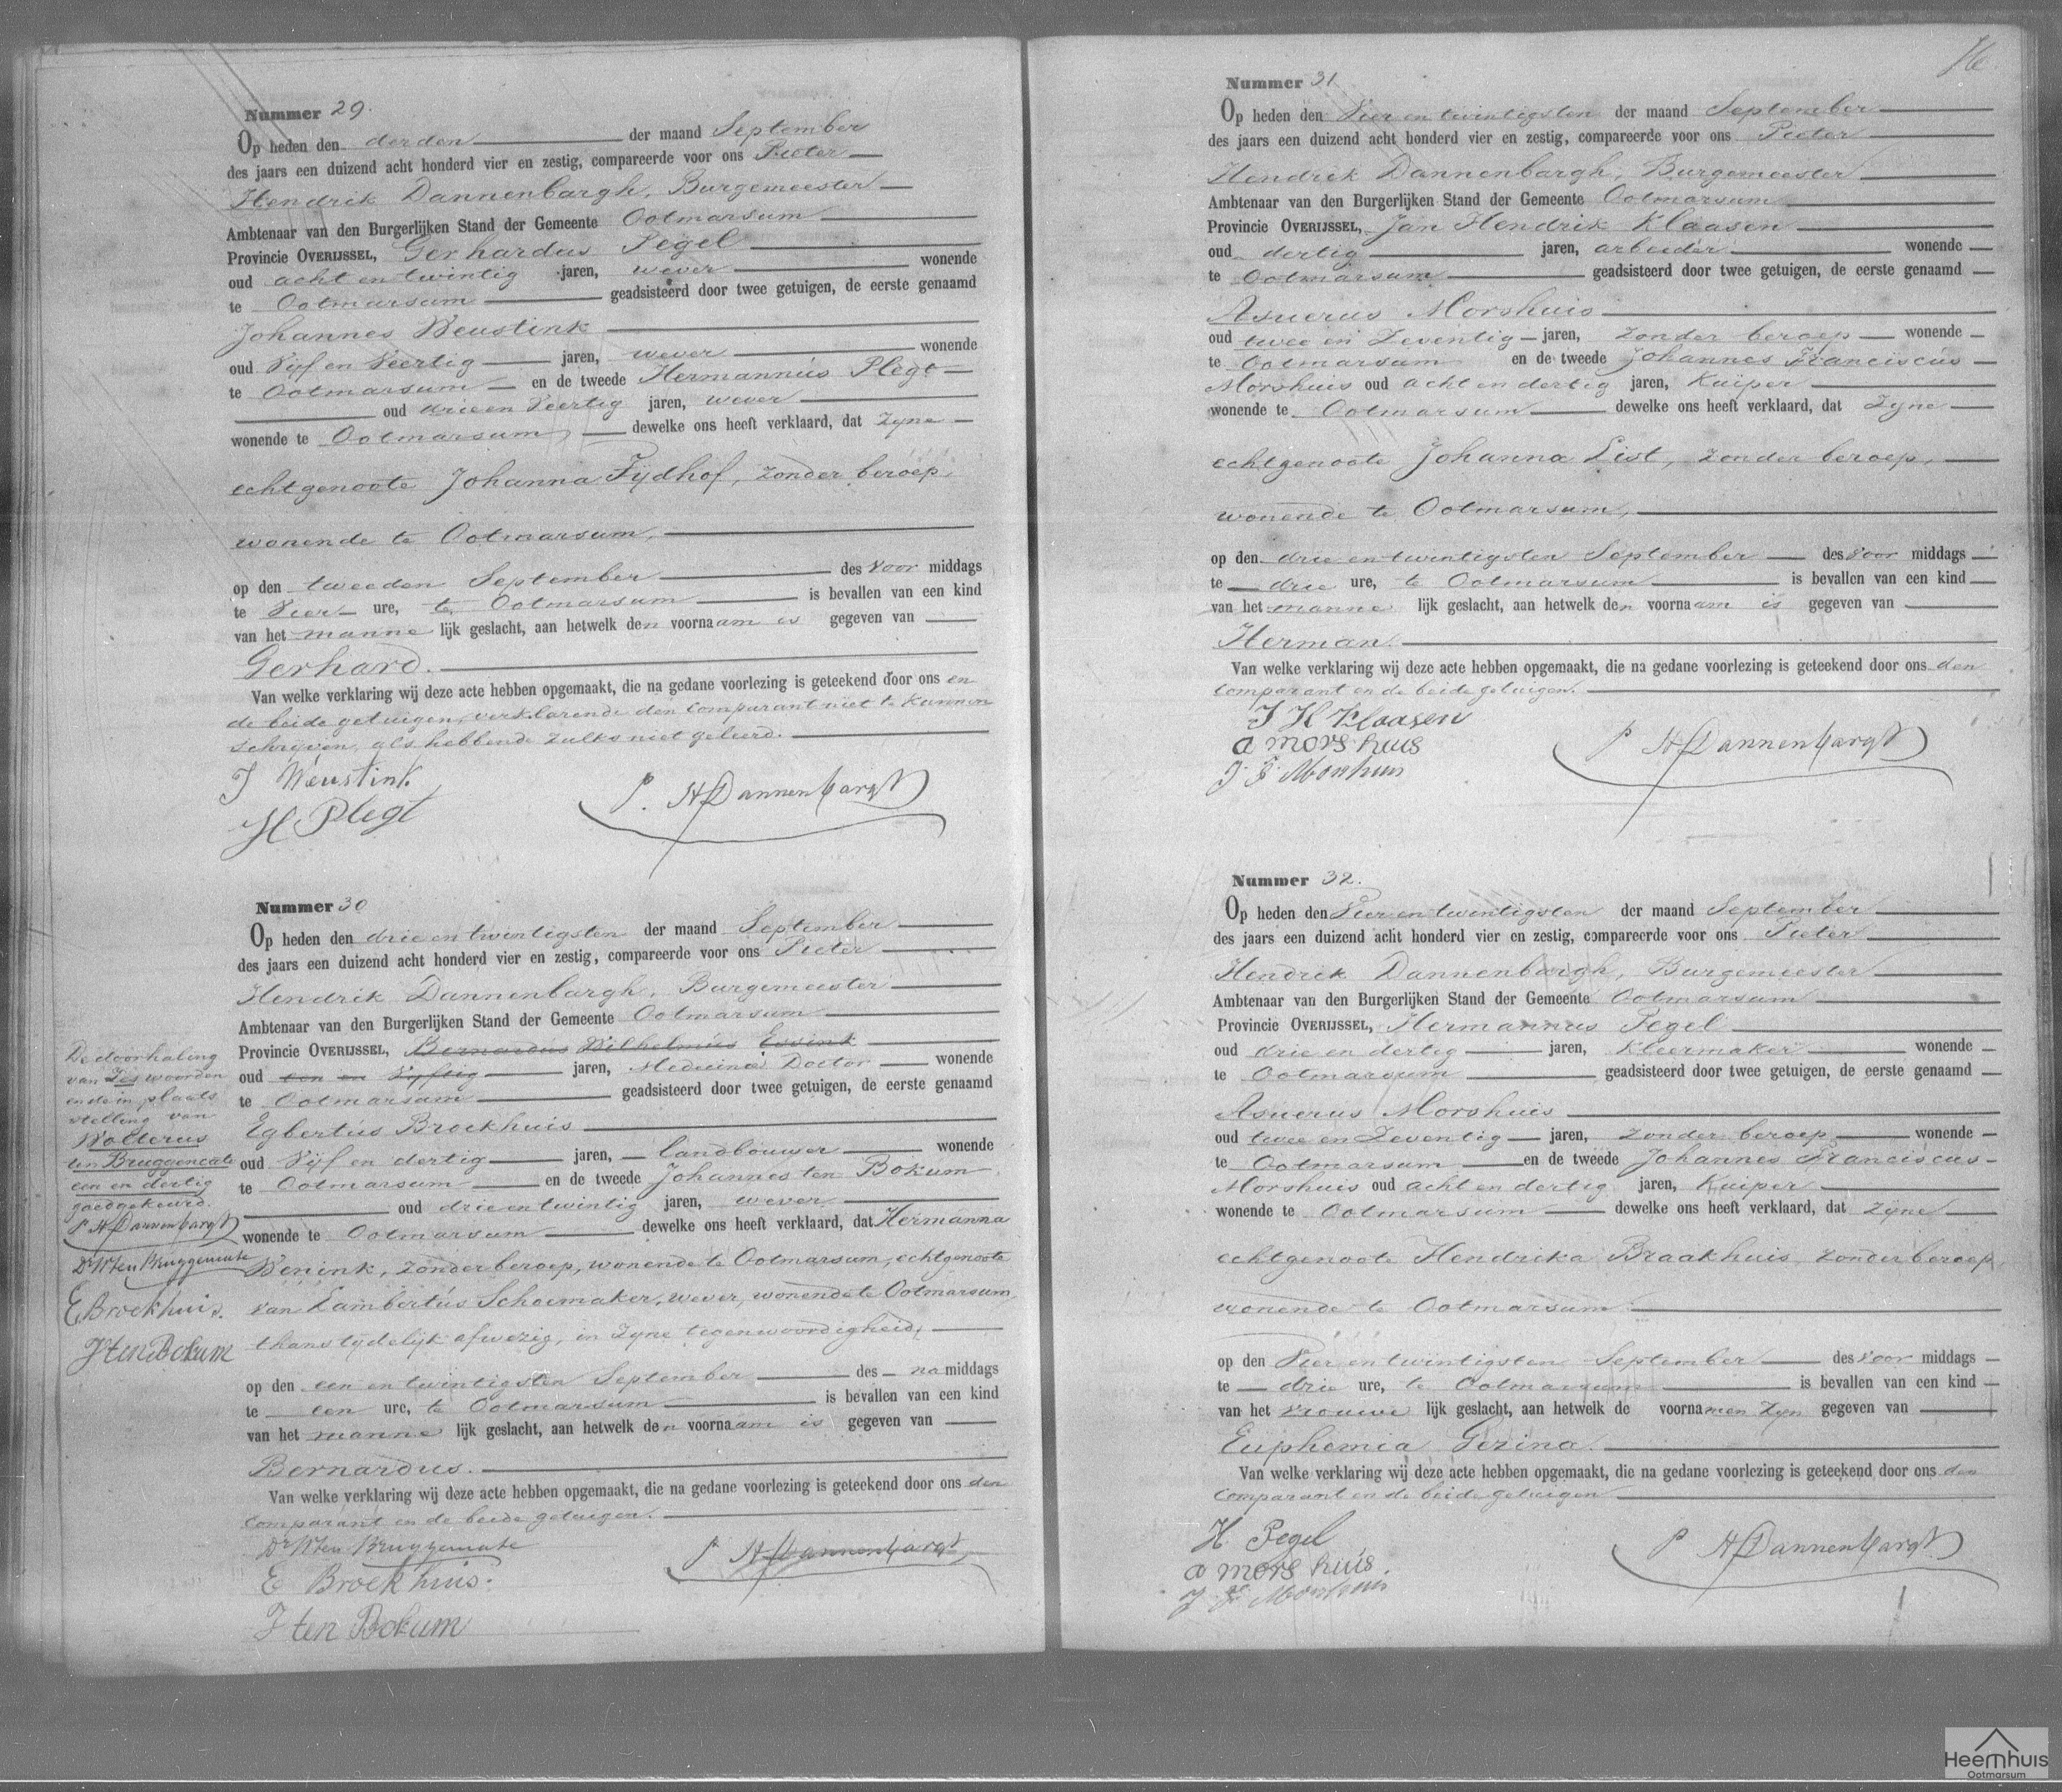 Nummer 29.
Op heden den derden der maand September
des jaars een duizend acht honderd vier en zestig, compareerde voor ons Pieter
Hendrik Dannenbargh, Burgemeester
Ambtenaar van den Burgerlijken Stand der Gemeente Ootmarsum
Provincie OVERIJSSEL, Gerhardus Pegel
oud acht en twintig jaren, wever wonende
te Ootmarsum geadsisteerd door twee getuigen, de eerste genaamd
Johannes Weustink
oud Vijf en Veertig jaren, wever wonende
te Ootmarsum en de tweede Hermannus Plegt
oud drie en Veertig jaren, wever
wonende te Ootmarsum, dewelke ons heeft verklaard, dat Zyne
echtgenoote Johanna Tijdhof, zonder beroep,
wonende te Ootmarsum,
op den tweeden September des Voor middags
te Vier ure, te Ootmarsum is bevallen van een kind
van het manne lijk geslacht, aan hetwelk den voornaam is gegeven van
Gerhard.
Van welke verklaring wij deze acte hebben opgemaakt, die na gedane voorlezing is geteekend door ons en
de beide getuigen, verklarende den Comparant niet te kunnen
schrijven, als hebbende zulks niet geleerd.
J Weustink
H Plegt
P. H Dannenbargh
Nummer 30
Op heden den drie en twintigsten der maand September
des jaars een duizend acht honderd vier en zestig, compareerde voor ons Pieter
Hendrik Dannenbargh, Burgemeester
Ambtenaar van den Burgerlijken Stand der Gemeente Ootmarsum
Provincie OVERIJSSEL, Bernardus Wilhelmus Essink
oud een en Vyftig jaren, Medicina Doctor wonende
te Ootmarsum geadsisteerd door twee getuigen, de eerste genaamd
Egbertus Broekhuis
oud Vijf en dertig jaren, landbouwer wonende
te Ootmarsum en de tweede Johannes ten Bokum
oud drie en twintig jaren, wever
wonende te Ootmarsum dewelke ons heeft verklaard, dat Hermanna
Wenink, zonder beroep, wonende te Ootmarsum, echtgenoote
van Lambertus Schoemaker, wever, wonende te Ootmarsum,
thans tijdelijk afwezig, in Zyne tegenwoordigheid,
op den een en twintigsten September des na middags
te een ure, te Ootmarsum is bevallen van een kind
van het manne lijk geslacht, aan hetwelk den voornaam is gegeven van
Bernardus.
Van welke verklaring wij deze acte hebben opgemaakt, die na gedane voorlezing is geteekend door ons den
Comparant en de beide getuigen.
Dr W ten Bruggencate
E Broekhuis.
J ten Bokum
P H Dannenbargh
De doorhaling
van Zes woorden
en de in plaats
stelling van
Wolterus
ten Bruggencate
een en dertig
goedgekeurd.
P H Dannenbargh
Dr W ten Bruggencate
E Broekhuis.
J ten Bokum
16
Nummer 31
Op heden den Vier en twintigsten der maand September
des jaars een duizend acht honderd vier en zestig, compareerde voor ons Pieter
Hendrik Dannenbargh, Burgemeester
Ambtenaar van den Burgerlijken Stand der Gemeente Ootmarsum
Provincie OVERIJSSEL, Jan Hendrik Klaasen
oud dertig jaren, arbeider wonende
te Ootmarsum geadsisteerd door twee getuigen, de eerste genaamd
Asuerus Morshuis
oud twee en Zeventig jaren, zonder beroep wonende
te Ootmarsum en de tweede Johannes Franciscus
Morshuis oud acht en dertig jaren, Kuiper
wonende te Ootmarsum dewelke ons heeft verklaard, dat Zyne
echtgenoote Johanna List, zonder beroep,
wonende te Ootmarsum,
op den drie en twintigsten September des Voor middags
te drie ure, te Ootmarsum is bevallen van een kind
van het manne lijk geslacht, aan hetwelk den voornaam is gegeven van
Herman.
Van welke verklaring wij deze acte hebben opgemaakt, die na gedane voorlezing is geteekend door ons den
Comparant en de beide getuigen.
J H Klaasen
a morshuis
J. F. Morshuis
P H Dannenbargh
Nummer 32.
Op heden den Vier en twintigsten der maand September
des jaars een duizend acht honderd vier en zestig, compareerde voor ons Pieter
Hendrik Dannenbargh, Burgemeester
Ambtenaar van den Burgerlijken Stand der Gemeente Ootmarsum
Provincie OVERIJSSEL, Hermannus Pegel
oud drie en dertig jaren, Kleermaker wonende
te Ootmarsum geadsisteerd door twee getuigen, de eerste genaamd
Asuerus Morshuis
oud twee en Zeventig jaren, zonder beroep wonende
te Ootmarsum en de tweede Johannes Franciscus
Morshuis oud acht en dertig jaren, Kuiper
wonende te Ootmarsum dewelke ons heeft verklaard, dat Zyne
echtgenoote Hendrika Braakhuis, zonder beroep,
wonende te Ootmarsum
op den Vier en twintigsten September des Voor middags
te drie ure, te Ootmarsum is bevallen van een kind
van het vrouwe lijk geslacht, aan hetwelk de voornamen Zyn gegeven van
Euphemia Gezina.
Van welke verklaring wij deze acte hebben opgemaakt, die na gedane voorlezing is geteekend door ons den
Comparant en de beide getuigen
H Pegel
a morshuis.
J F Morshuis
P H Dannenbargh
Heemhuis
Ootmarsum